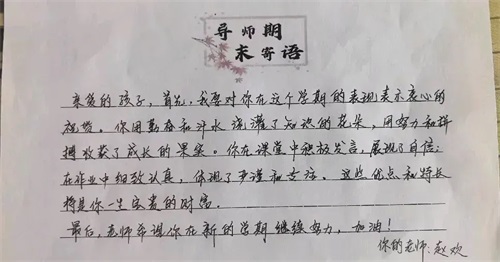 导师期
末寄语
亲爱的孩子，首先，我要对你在这个学期的表现表示衷心的
祝贺。你用勤奋和汁水浇灌了知识的花朵，用努力和拼
搏收获了成长的果实。你在课堂中积极发言，展现了自信；
在作业中细致认真，体现了严谨和专注。这些优点和特长
将是你一生宝贵的财富。
最后，老师希望你在新的学期继续努力，加油！
你的老师：赵欢